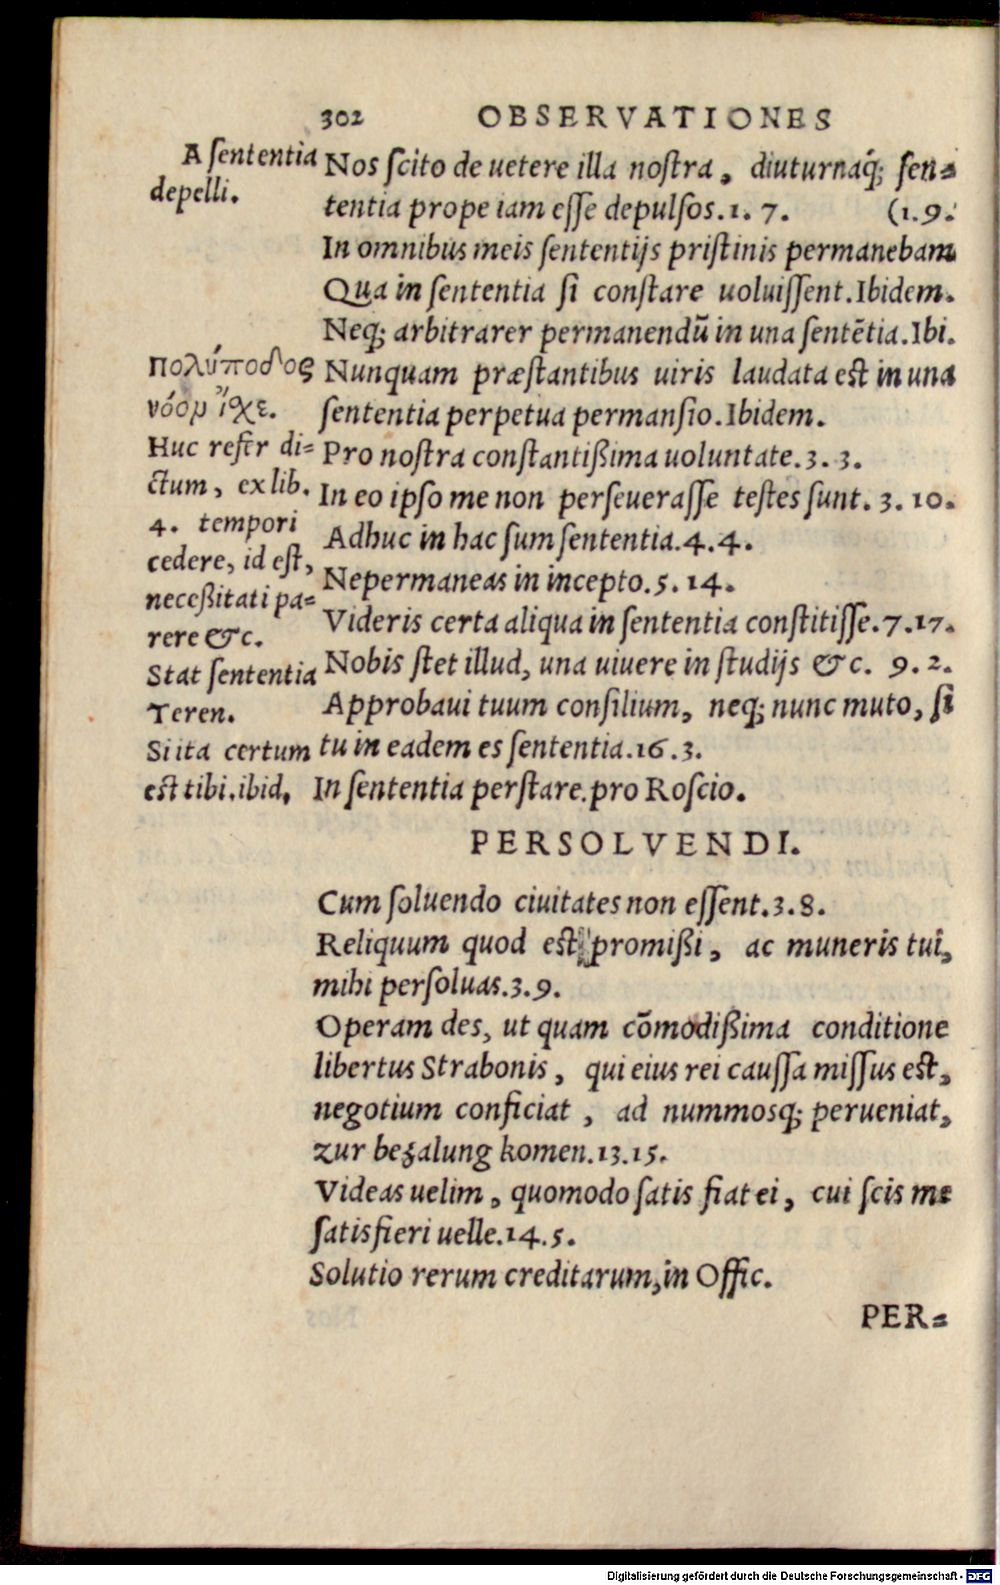 302 OBSERVATIONES
A ſententia
depelli.
Nos ſcito de uetere illa noſtra, diuturnaq́; ſen-
tentia prope iam eſſe depulſos.1. 7. (1.9.
In omnibus meis ſententijs priſtinis permanebam
Qua in ſententia ſi conſtare uoluiſſent.Ibidem.
Neq; arbitrarer permanendū in una ſentētia.Ibi.
πολύποδος
νόομ ἴχε.
Huc refer di-
ctum, ex lib.
4. tempori
cedere, id eſt,
neceßitati pa-
rere &c.
Stat ſententia
Teren.
Si ita certum
est tibi.ibid.
Nunquam præſtantibus uiris laudata est in una
ſententia perpetua permanſio.Ibidem.
Pro noſtra conſtantißima uoluntate.3. 3.
In eo ipſo me non perſeueraſſe teſtes ſunt. 3. 10.
Adhuc in hac ſum ſententia.4. 4.
Nepermaneas in incepto.5. 14.
Videris certa aliqua in ſententia conſtitiſſe.7.17.
Nobis ſtet illud, una uiuere in ſtudijs &c. 9. 2.
Approbaui tuum conſilium, neq; nunc muto, ſi
tu in eadem es ſententia.16.3.
In ſententia perſtare.pro Roſcio.
PERSOLVENDI.
Cum ſoluendo ciuitates non eſſent.3.8.
Reliquum quod est promißi, ac muneris tui,
mihi perſoluas.3.9.
Operam des, ut quam cōmodißima conditione
libertus Strabonis, qui eius rei cauſſa miſſus est,
negotium conficiat, ad nummosq; perueniat,
zur bezalung komen.13.15.
Videas uelim, quomodo ſatis fiat ei, cui ſcis me
ſatisfieri uelle.14.5.
Solutio rerum creditarum,in Offic.
PER-
Digitalisierung gefördert durch die Deutsche Forschungsgemeinschaft - DFG